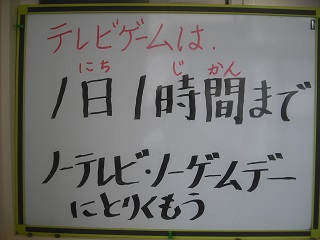 テレビゲームは、
にち じ かん
1日1時間まで
ノーテレビ・ノーゲームデー
にとりくもう